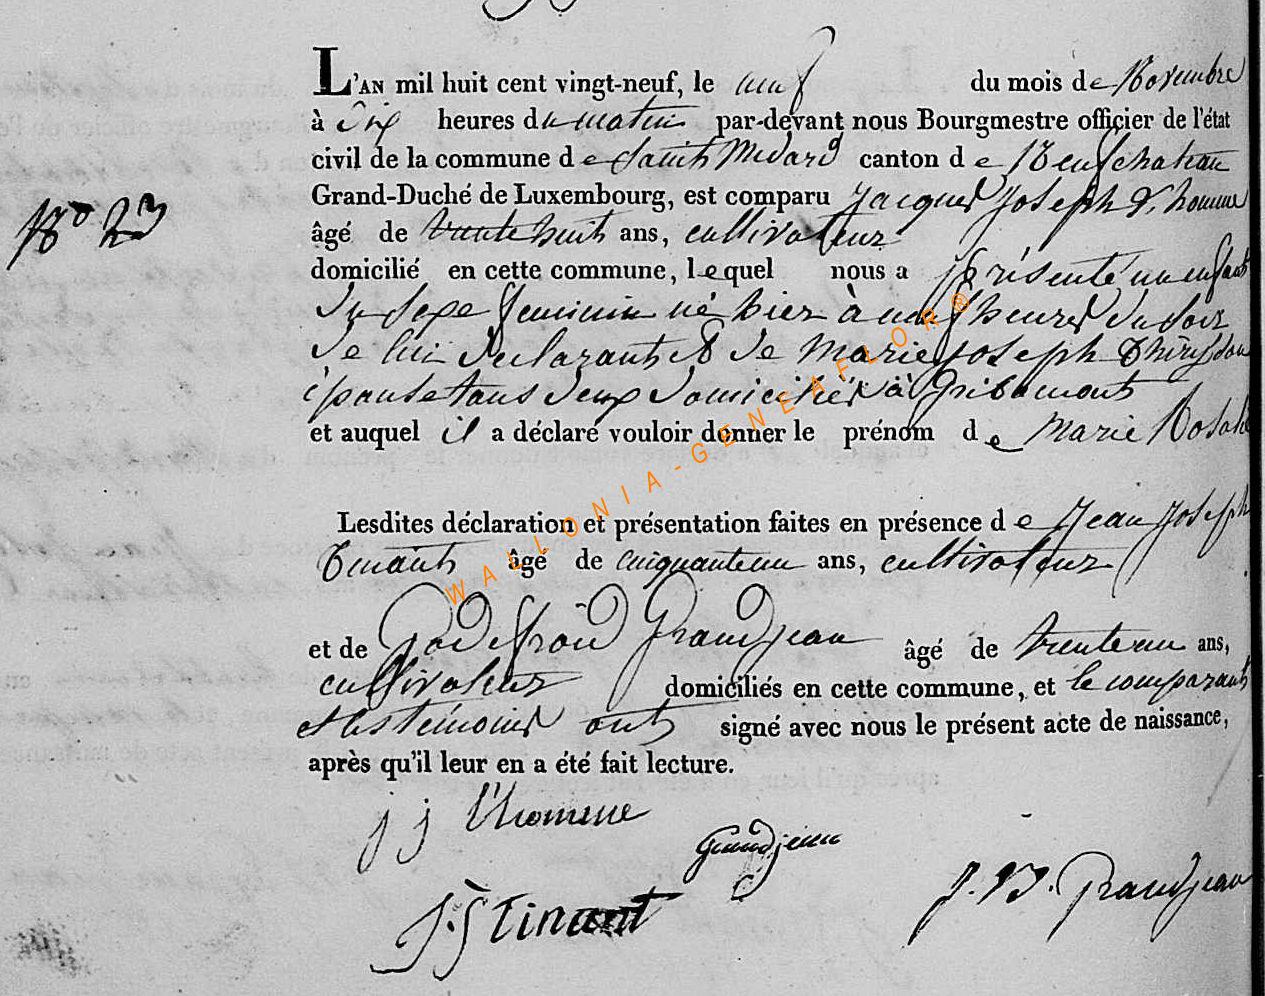 L'AN mil huit cent vingt-neuf, le neuf du mois de Novembre
à Dix heures du matin par-devant nous Bourgmestre officier de l'état
civil de la commune de Saint Medard canton de Neufchateau
Grand-Duché de Luxembourg, est comparu Jacques Joseph L'homme
N° 23
âgé de trente huit ans, cultivateur
domicilié en cette commune, lequel nous a présenté un enfant
du sexe feminin né hier à neuf heures du soir
de lui Déclarant & de Marie Joseph son
épouse tous deux domiciliés à Gribomont
et auquel il a déclaré vouloir donner le prénom de Marie Rosalie
Lesdites déclaration et présentation faites en présence de Jean Joseph
Tinant âgé de cinquante un ans, cultivateur
et de Godefroid Grandjean âgé de trente un ans,
cultivateur domiciliés en cette commune, et le comparant
et les témoins ont signé avec nous le présent acte de naissance,
après qu'il leur en a été fait lecture.
j j l'homme
Grandjean
J. J Tinant
J. B. Grandjean
WALLONIA-GENEAFLOR®